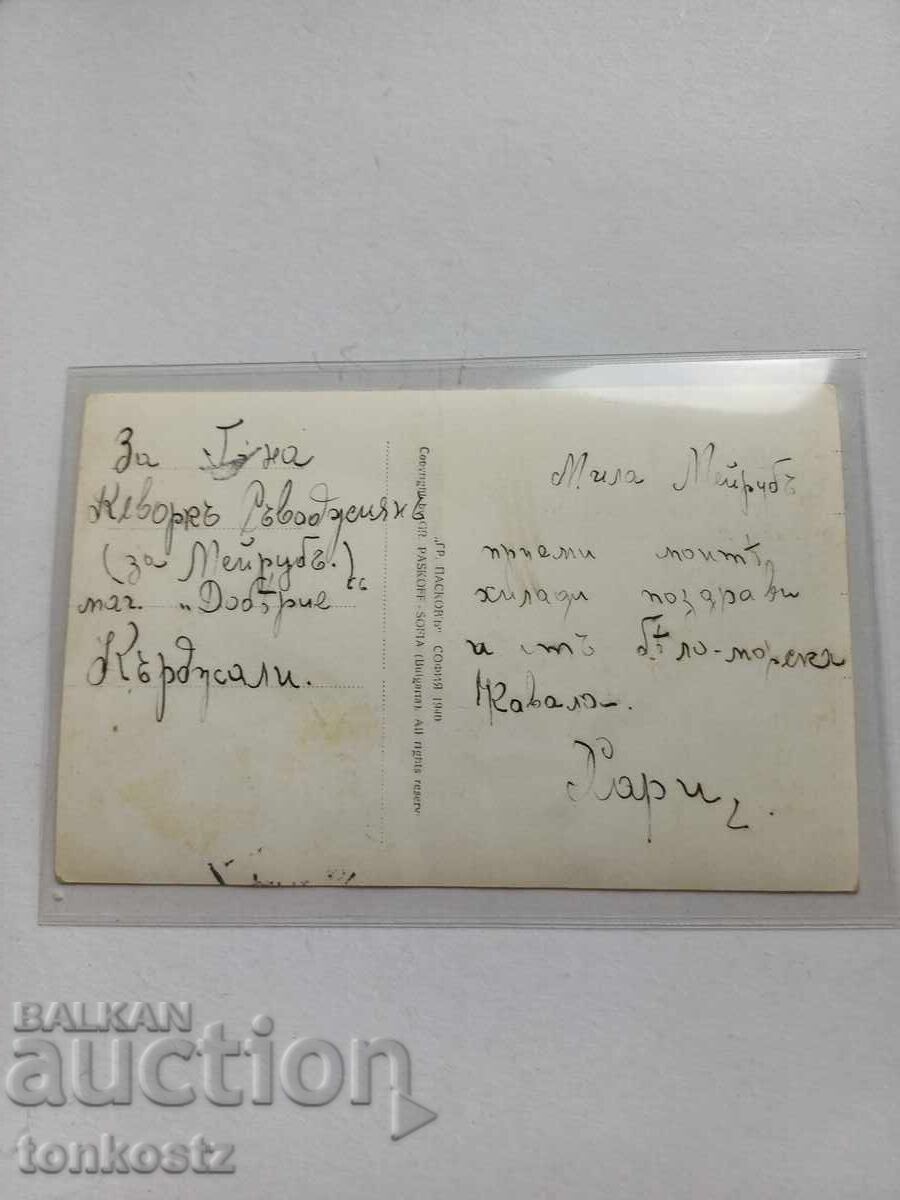 За Г-на
Кеворкъ
(за Мейрубъ.)
маг. „Добрие“
Кърджали.
Copyright by GR. PASKOFF - SOFIA (Bulgaria). All rights reserv
„ГР. ПАСКОВЪ“ СОФИЯ 1940
Мила Мейрубъ
приеми моитѣ
хиляди поздрави
и отъ бѣло-морска
Кавала.
Хари
BALKAN
auction
tonkostz